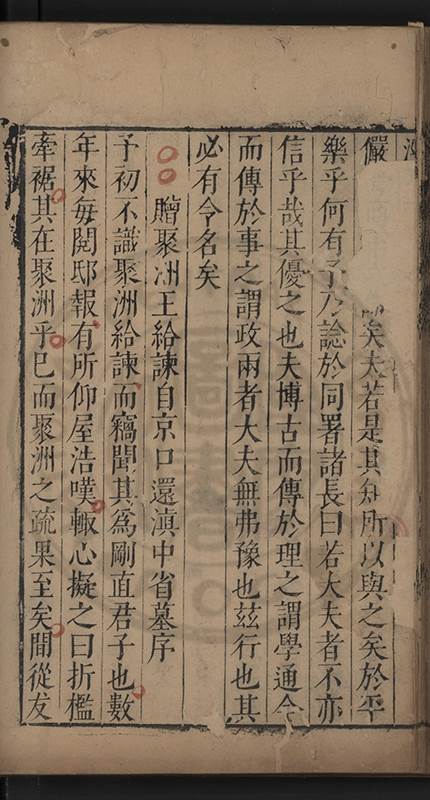 儼矣夫若是其知所以與之矣於平
樂乎何有予乃諗於同署諸長曰若大夫者不亦
信乎哉其優之也夫博古而傳於理之謂學通今
而傳於事之謂政兩者大夫無弗豫也茲行也其
必有令名矣
贈聚洲王給諫自京口還滇中省墓序
子初不識聚洲給諫而竊聞其為剛直君子也數
年來每閱邸報有所仰屋浩嘆輙心擬之曰折檻
牽裾其在聚洲乎巳而聚洲之疏果至矣間從友